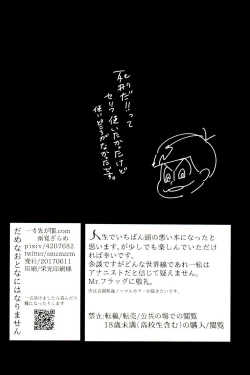 死刑だ!!って
セリフ使いたかったけど
使いどころがなかった…
だめなおとなにはなりません
pixiv/4207682
発行/20170611
印刷/栄光印刷様
人生でいちばん頭の悪い本になったと
思いますが少しでも楽しんでいただけ
れば幸いです。
余談ですがどんな世界線であれ一松は
アナニストだと信じて疑えません。
Mr.フラッグに敬礼。
禁止/転載/転売/公共の場での閲覧
18歳未満(高校生含む)の購入/閲覧